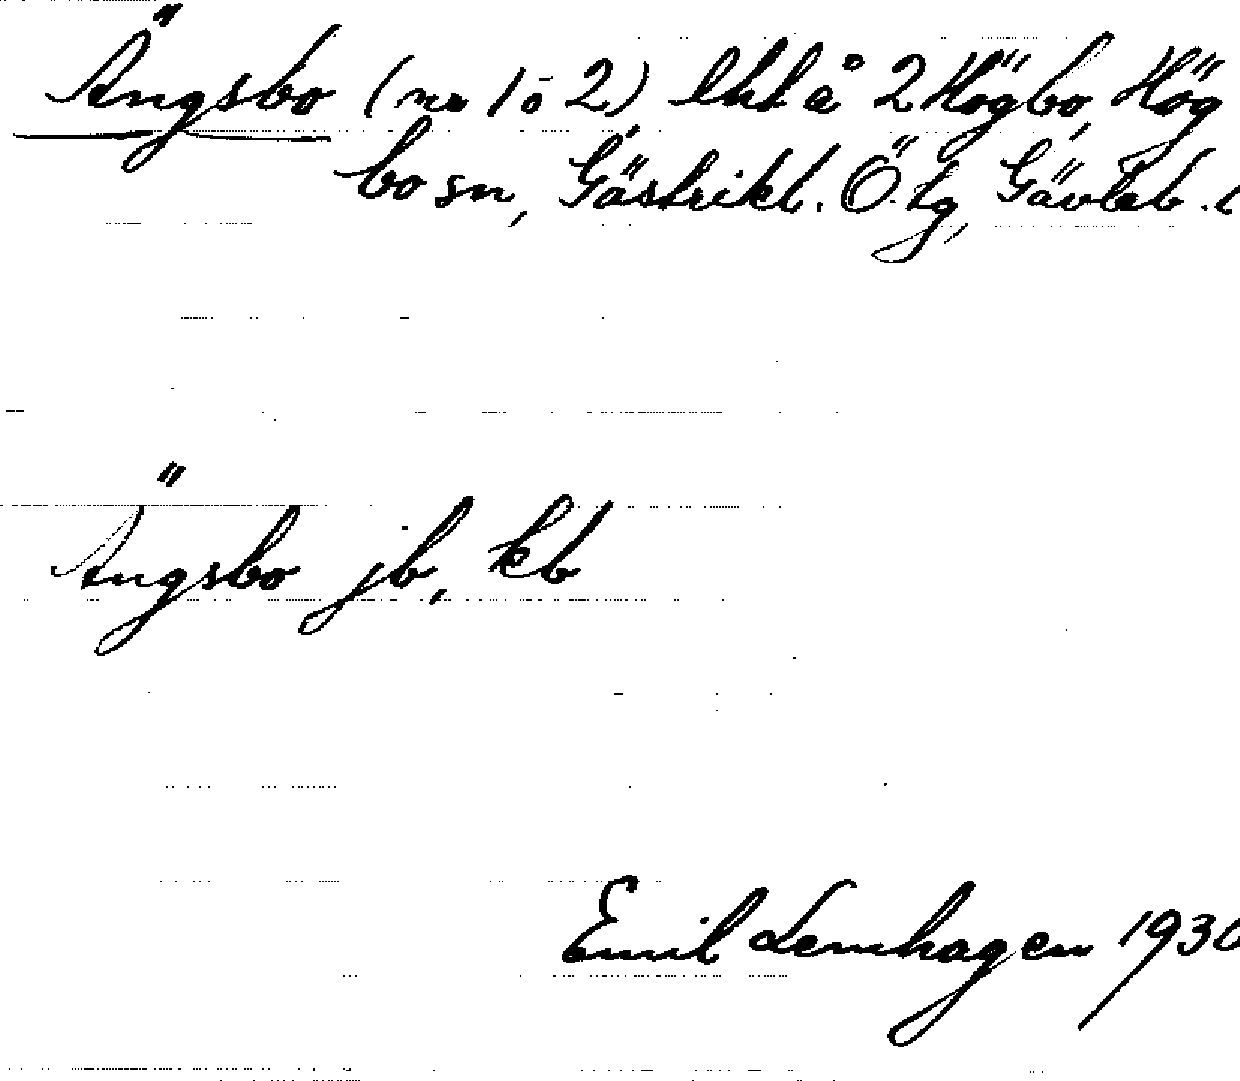 Ängsbo (nr 1 o 2) lht å 2 Högbo, Hög
bo sn, Gästrikl. Ö. tg, Gävleb. l
Ängsbo jb, kb
Emil Lernhagen 1930